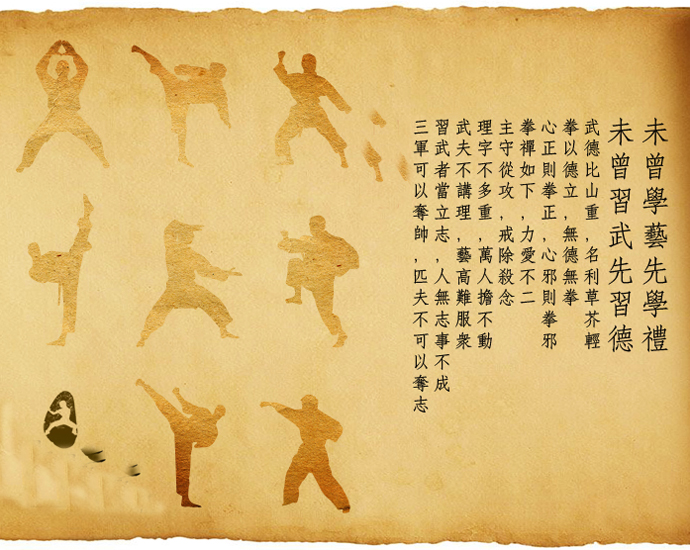 未曾學藝先學禮
未曾習武先習德
武德比山重，名利草芥輕
拳以德立，無德無拳
心正則拳正，心邪則拳邪
拳禪如下，力愛不二
主守從攻，戒除殺念
理字不多重，萬人擔不動
武夫不講理，藝高難服衆
習武者當立志，人無志事不成
三軍可以奪帥，匹夫不可以奪志